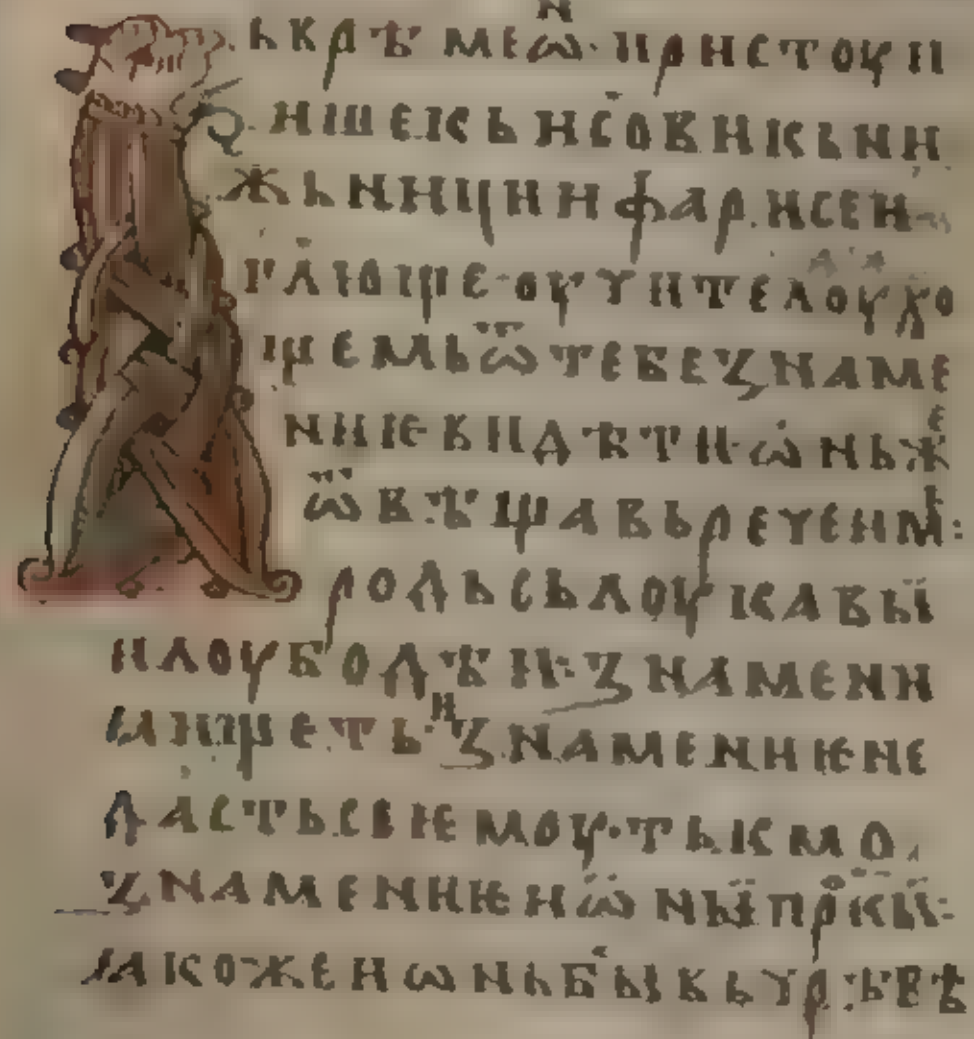 Вькрѣмеѡⷩ҇·пристоуп
ишекьи҃сѹвикьни
жьници и фарисеи
гл҃юще·оучителоу хо
щемь ѿ тебе ꙁнаме
ниѥ видѣти·ѡнь жⷷ
ѿвѣща вь рече имь:
родь сь лоукавы
и лоубодѣи·ꙁнамени
ꙗ ищеть·и ꙁнамениѥ не
дасть се ѥмоу·тькмо
ꙁнамениѥ иѡны прⷪ҇ка:
ꙗкоже и ѡнь бы вь чрѣвѣ